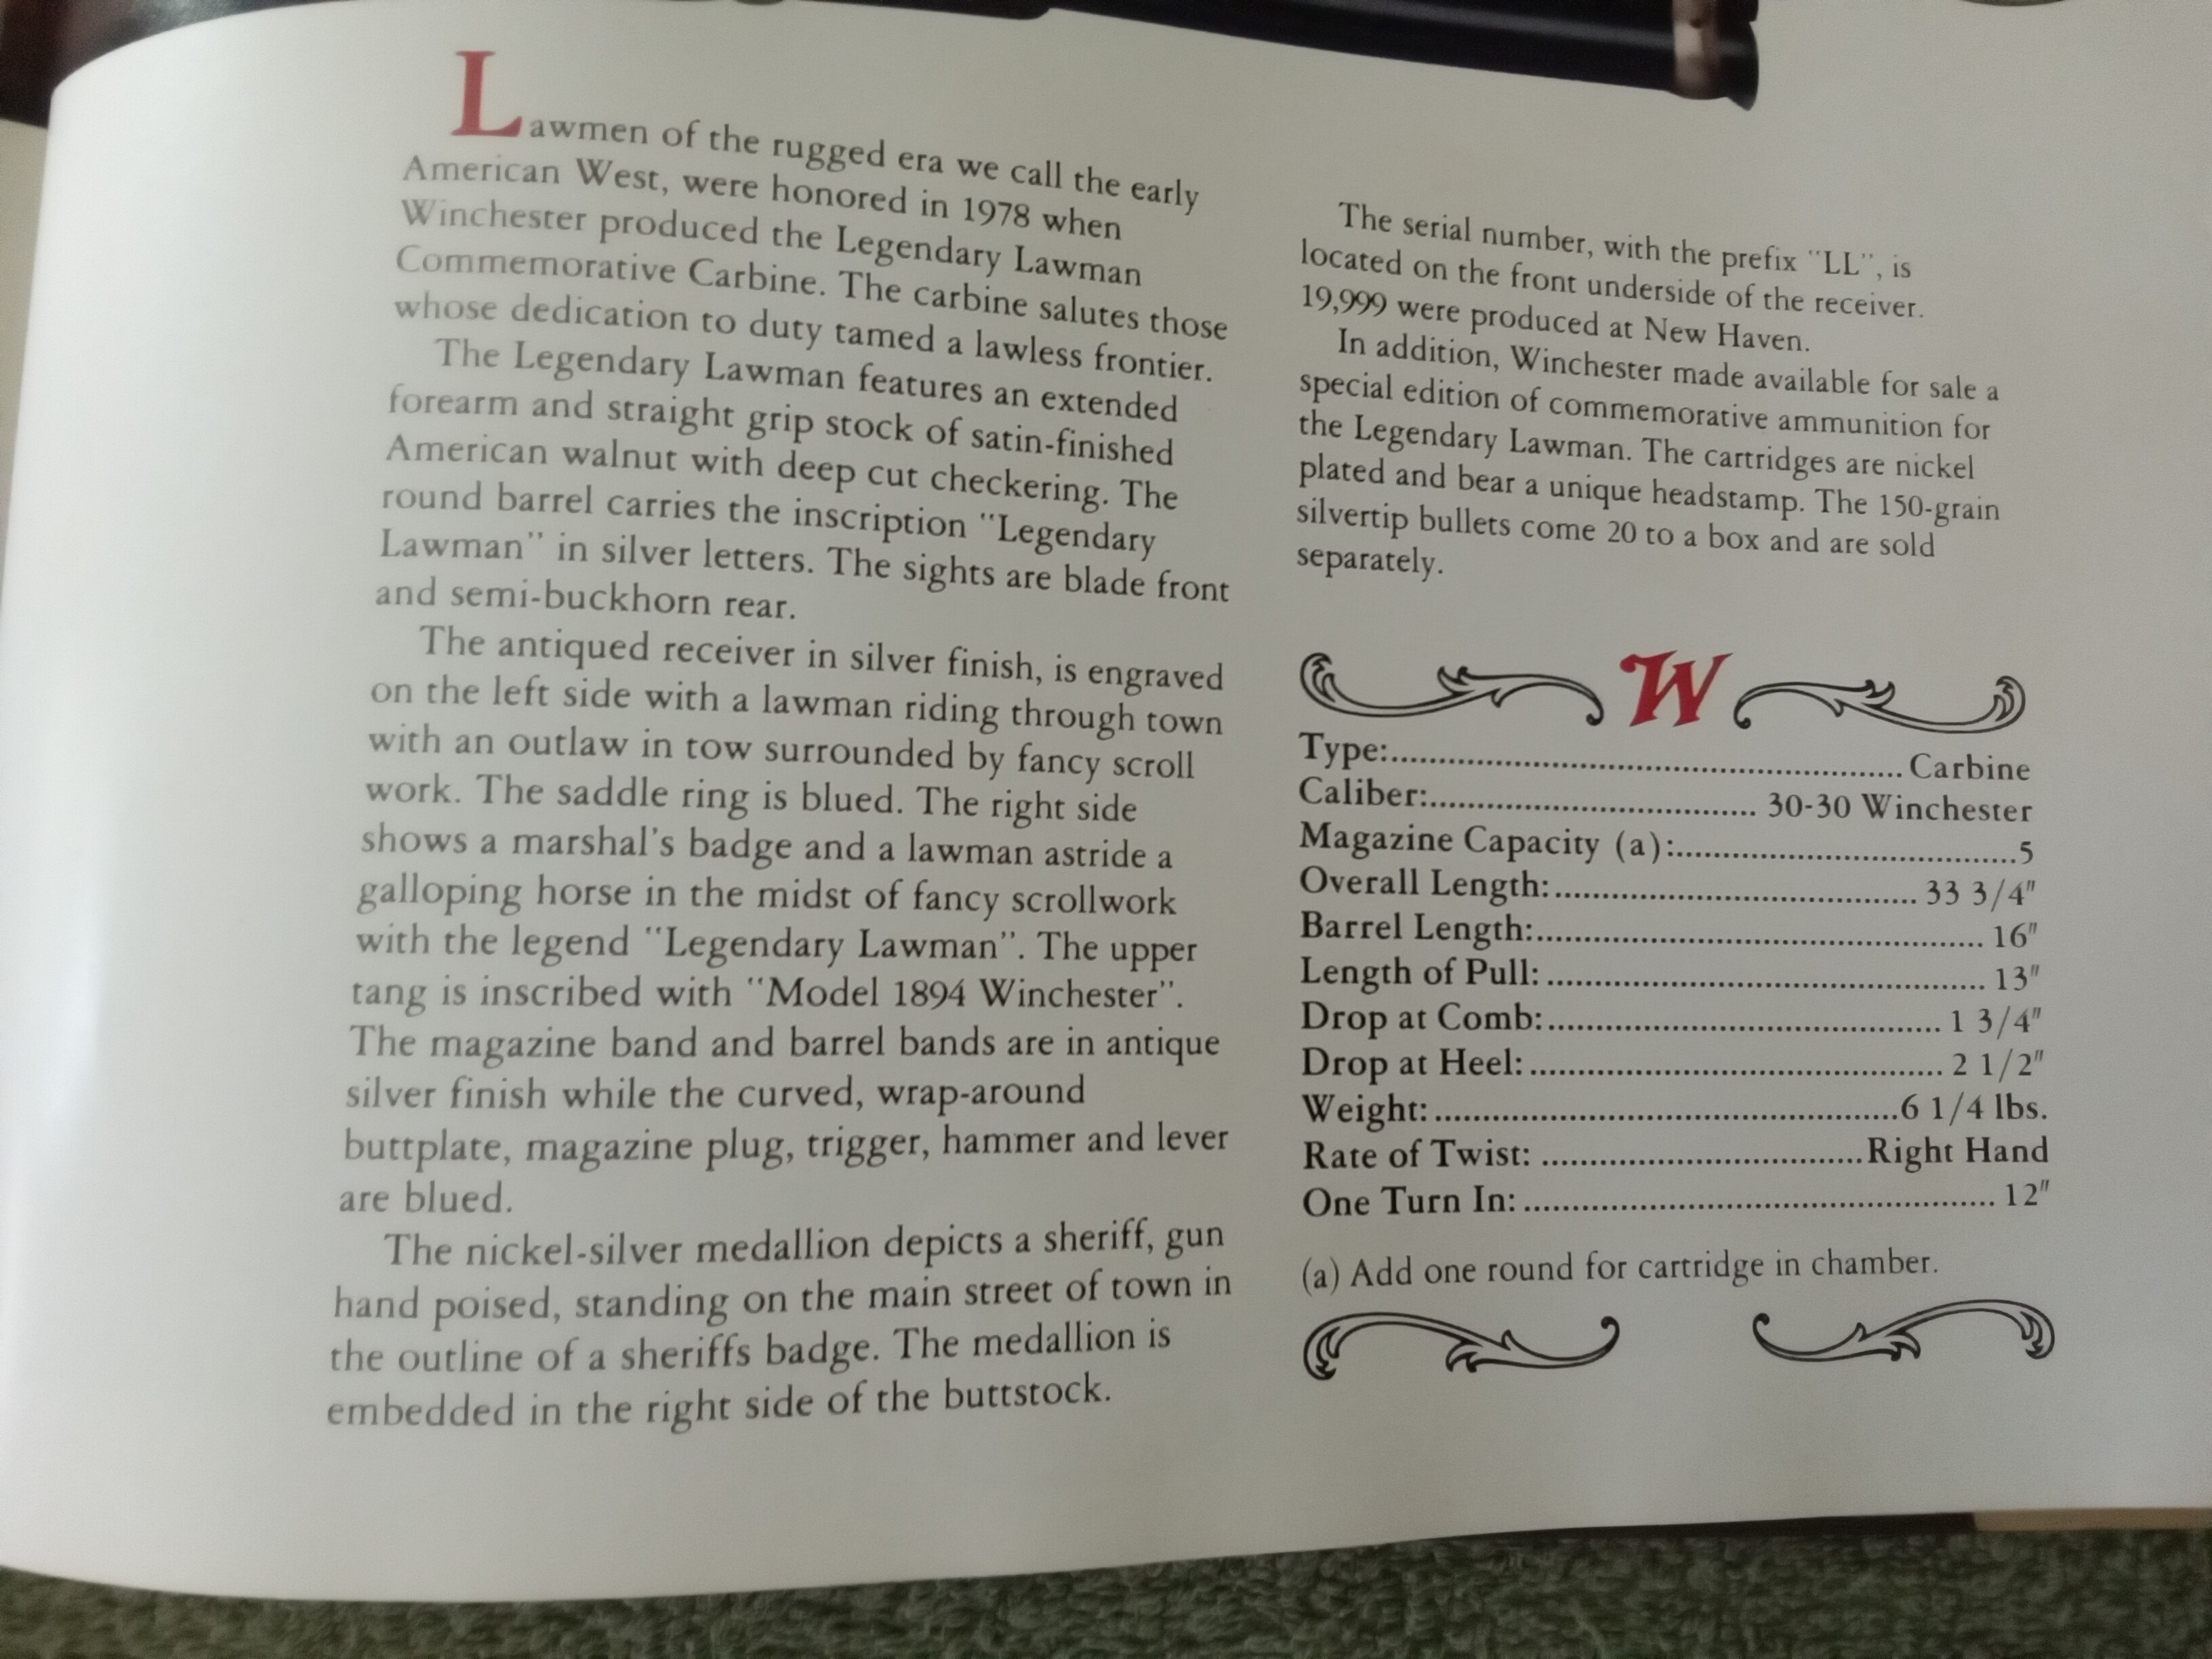 Lawmen of the rugged era we call the early
American West, were honored in 1978 when
Winchester produced the Legendary Lawman
Commemorative Carbine. The carbine salutes those
whose dedication to duty tamed a lawless frontier.
The Legendary Lawman features an extended
forearm and straight grip stock of satin-finished
American walnut with deep cut checkering. The
round barrel carries the inscription "Legendary
Lawman" in silver letters. The sights are blade front
and semi-buckhorn rear.
The antiqued receiver in silver finish, is engraved
on the left side with a lawman riding through town
with an outlaw in tow surrounded by fancy scroll
work. The saddle ring is blued. The right side
shows a marshal's badge and a lawman astride a
galloping horse in the midst of fancy scrollwork
with the legend "Legendary Lawman". The upper
tang is inscribed with "Model 1894 Winchester".
The magazine band and barrel bands are in antique
silver finish while the curved, wrap-around
buttplate, magazine plug, trigger, hammer and lever
are blued.
The nickel-silver medallion depicts a sheriff, gun
hand poised, standing on the main street of town in
the outline of a sheriffs badge. The medallion is
embedded in the right side of the buttstock.
The serial number, with the prefix "LL", is
located on the front underside of the receiver.
19,999 were produced at New Haven.
In addition, Winchester made available for sale a
special edition of commemorative ammunition for
the Legendary Lawman. The cartridges are nickel
plated and bear a unique headstamp. The 150-grain
silvertip bullets come 20 to a box and are sold
separately.
W
Type:.......... Carbine
Caliber:.......... 30-30 Winchester
Magazine Capacity (a):..........5
Overall Length:.......... 33 3/4"
Barrel Length:.......... 16"
Length of Pull:.......... 13"
Drop at Comb:.......... 1 3/4"
Drop at Heel:.......... 2 1/2"
Weight:..........6 1/4 lbs.
Rate of Twist: ..........Right Hand
One Turn In:.......... 12"
(a) Add one round for cartridge in chamber.